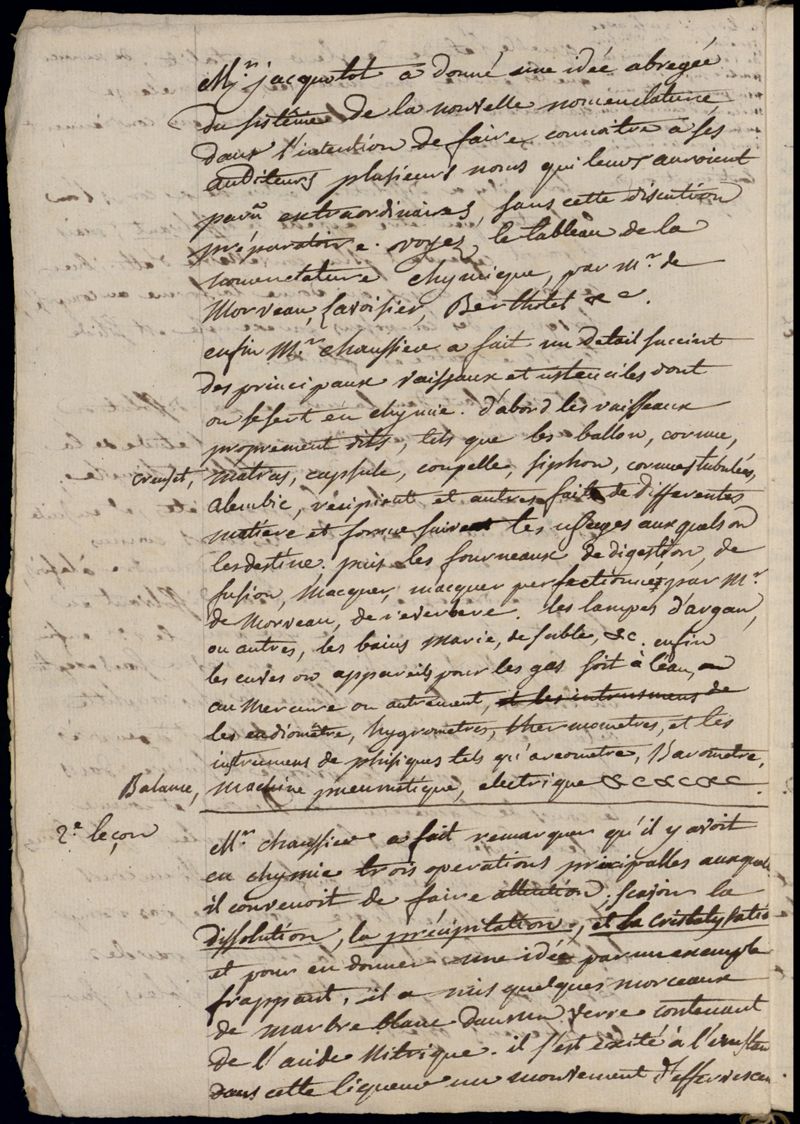 Mr. jacquotot a donné une idée abregée
du sistême de la nouvelle nomenclature
dans l'intention de faire connoitre a ses
auditeurs plusieurs noms qui leurs auroient
paru extraordinaires, sans cette discution
préparatoire. voyez, le tableau de la
nomenclature chymique, par mr. de
Morveau, Lavoisier, Bertholet &c.
enfin Mr. chaussier a fait un detail succint
des principaux vaisseaux et ustenciles dont
on se sert en chymie. d'abord les vaisseaux
proprement dits, tels que les ballon, cornue,
creuset, matras, capsule, coupelle, siphon, cornues tubulées,
alembic, récipient et autres faits de differentes
matiere et forme suivant les usages auxquels on
les destine. puis les fourneaux de digestion, de
fusion, Macquer, macquer perfectionnez par Mr.
de Morveau, de reverbere. les lampes d'argan,
ou autres, les bains marie, de sable, &c. enfin
les cuves ou appareils pour les gas soit à l'eau,
au mercure ou autrement, et les instrumens de
les eudiomètre, hygrometres, thermometres, et les
instrumens de phisiques tels qu'areometre, Barometre,
Balance, machine pneumatique, electrique &c &c &c.
2e. leçon Mr. chaussier a fait remarquer qu'il y avoit
en chymie trois operations principales auxquel
il convenoit de faire attention. sçavoir la
dissolution, la précipitation, et la cristalysatio
et pour en donner une idée par un exemple
frappant, il a mis quelques morceaux
de marbre blanc dans un verre contenant
de l'acide Nitrique. il s'est exité à l'instan
dans cette liqueur un mouvement d'effervescen